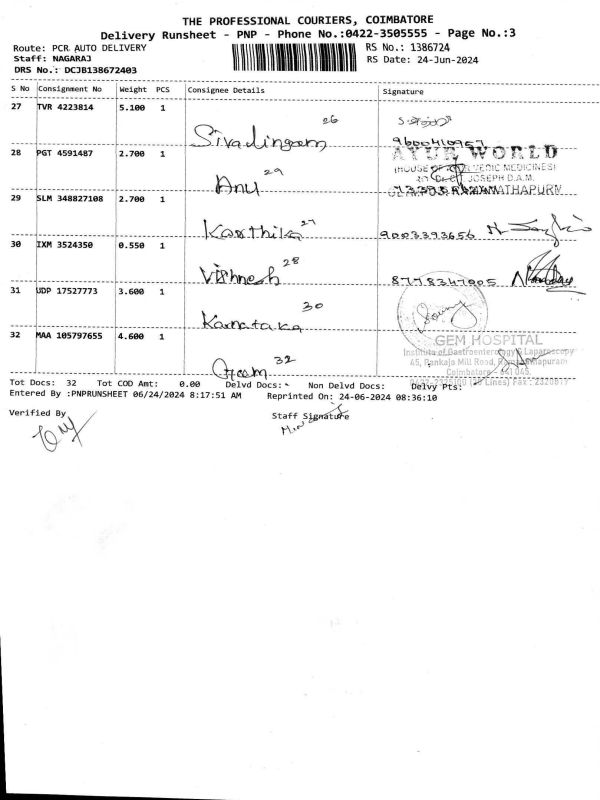 THE PROFESSIONAL COURIERS, COIMBATORE
Delivery Runsheet - PNP - Phone No.:0422-3505555 - Page No.:3
Route: PCR AUTO DELIVERY
RS No.: 1386724
Staff: NAGARAJ
RS Date: 24-Jun-2024
DRS No.: DCJB138672403
S No Consignment No Weight PCS Consignee Details Signature
27 TVR 4223814 5.100 1
26
Sivalingam
9600410957
28 PGT 4591487 2.700 1
AYUR WORLD
(HOUSE OF AYURVEDIC MEDICINES)
JOSEPH D.A.M.
29
Anu
29 SLM 348827108 2.700 1
27
Karthika 9003393656
30 IXM 3524350 0.550 1
28
Vishnesh 8778347005
31 UDP 17527773 3.600 1
30
Karnataka
32 MAA 105797655 4.600 1
GEM HOSPITAL
Institute of Gastroenterology & Laparoscopy
45, Pankaja Mill Road, Ramanathapuram
Coimbatore - 641 045.
32
Geem
0422-2325100 (20 Lines) Fax : 2320879
Tot Docs: 32 Tot COD Amt: 0.00 Delvd Docs: Non Delvd Docs: Delvy Pts:
Entered By :PNPRUNSHEET 06/24/2024 8:17:51 AM Reprinted On: 24-06-2024 08:36:10
Verified By
Staff Signature